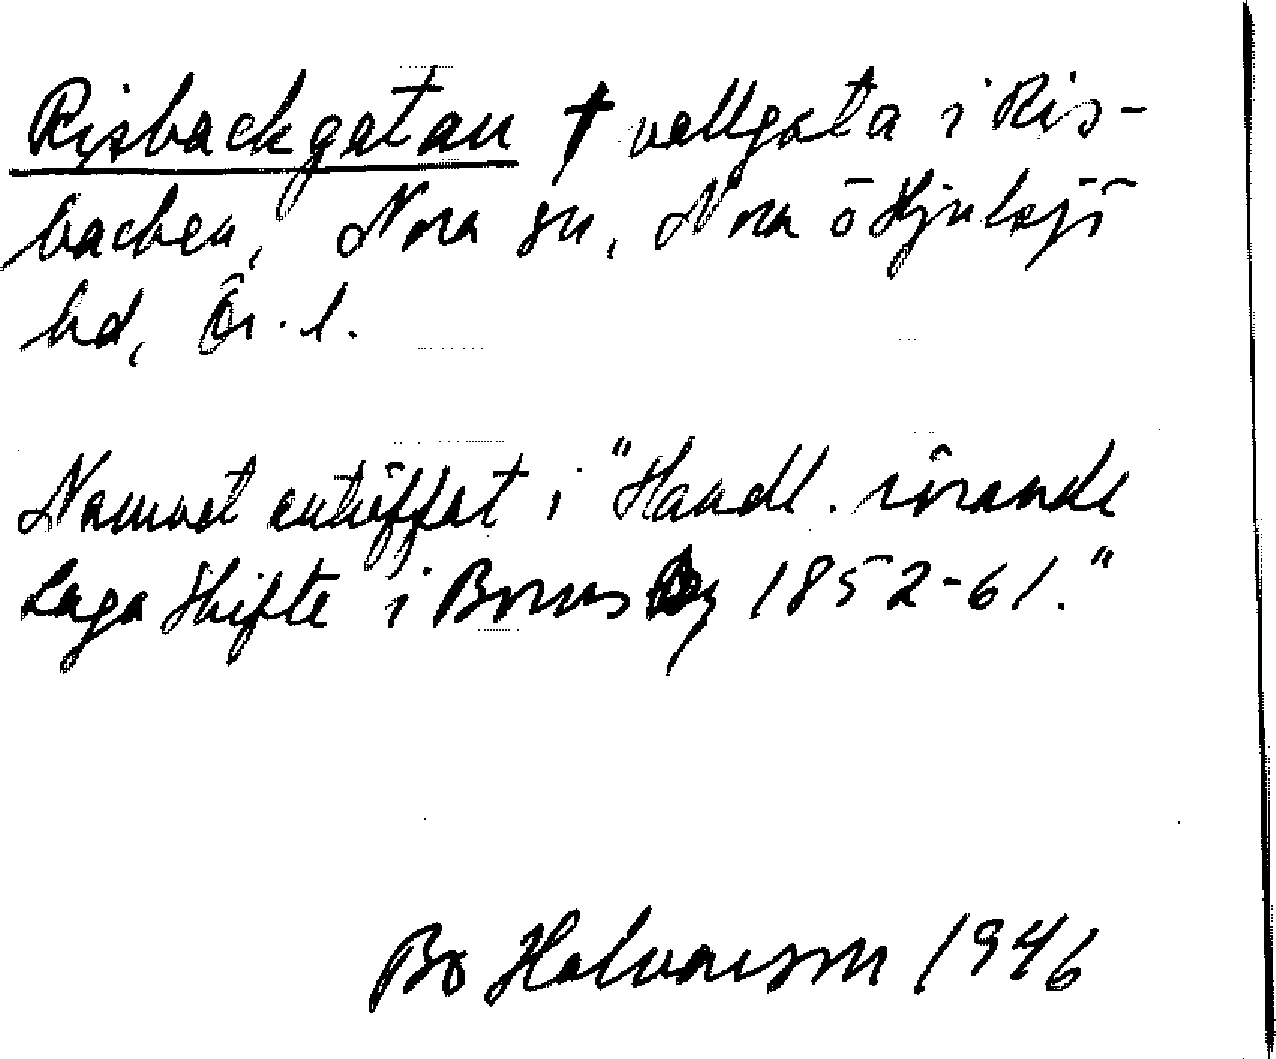 Risbackgatan † vallgata i Ris-
backen, Nora sn, Nora ö Hjulsjö
bd, Ör. l.
Namnet anträffat i "Handl. rörande
Laga Skifte i Bornsby 1852-61."
Bo Halvarsson 1946